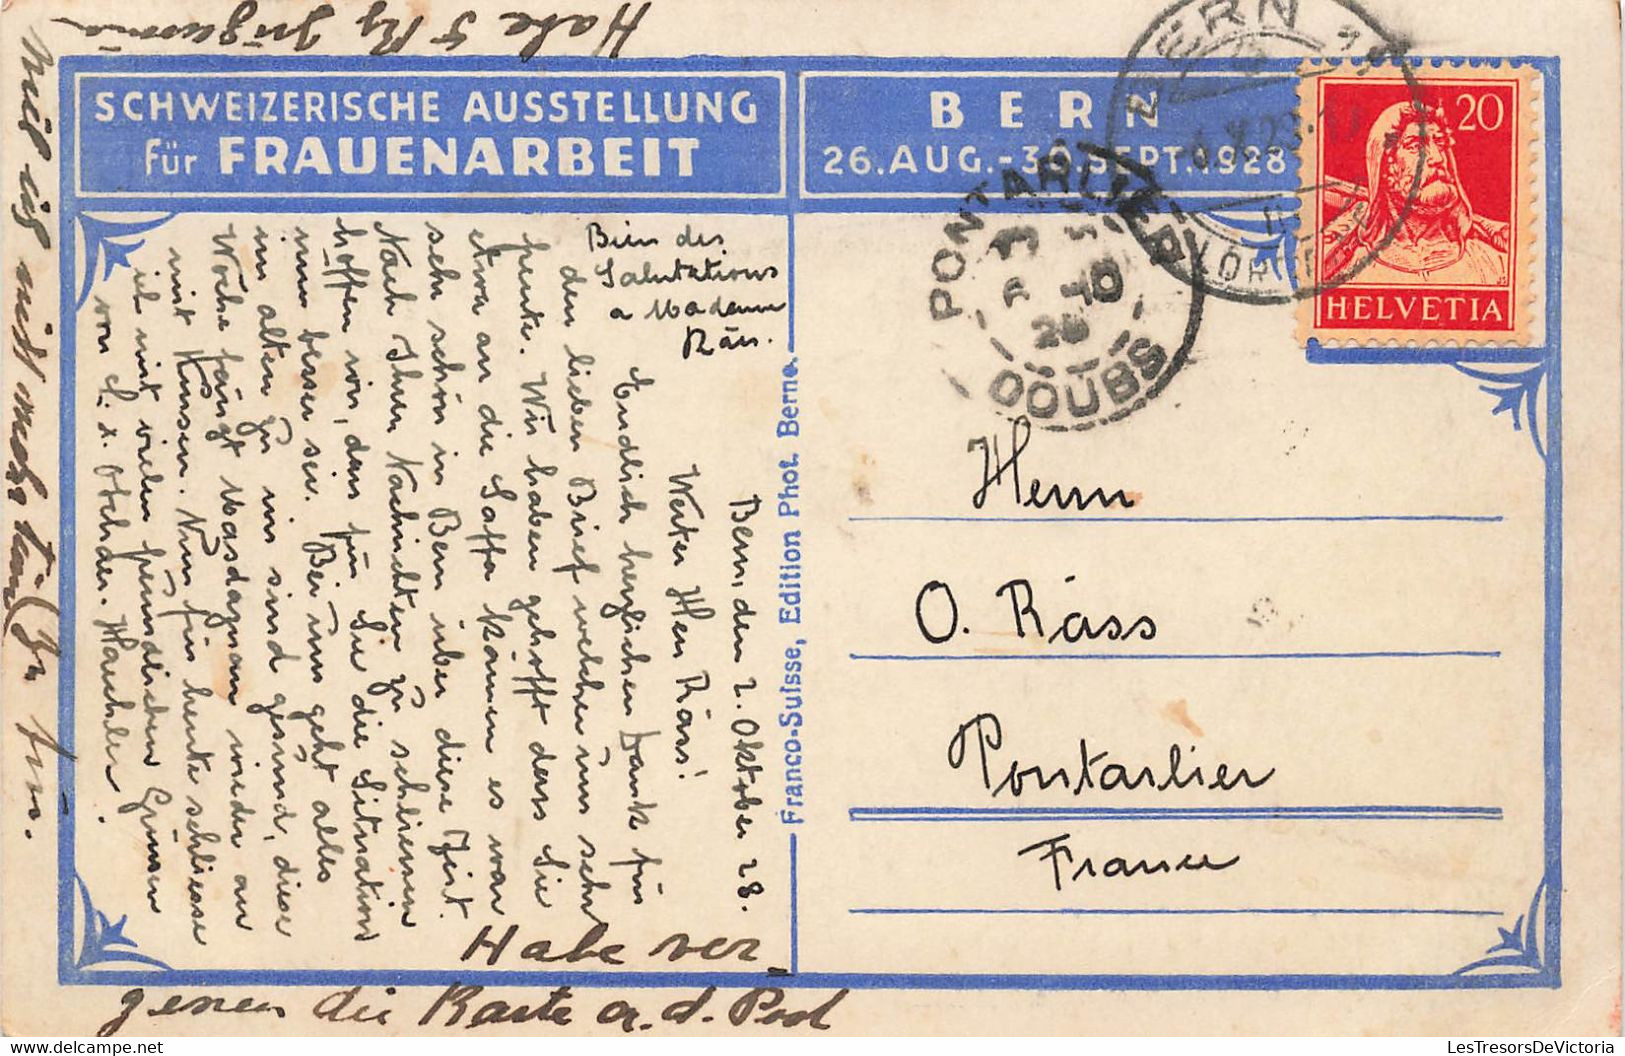 SCHWEIZERISCHE AUSSTELLUNG
für FRAUENARBEIT
BERN
26.AUG.-30.SEPT.1928
20
HELVETIA
BERN
PONTARLIER
3 10
28
DOUBS
Franco-Suisse, Edition Phot. Berne.
Herrn
O. Räss
Pontarlier
France
Bern, den 2. Oktober 28.
Werter Herr Räss!
Endlich herzlichen Dank für
den lieben Brief welcher uns sehr
freute. Wir haben gehofft dass Sie
etwa an die Saffa kämen es war
sehr schön in Bern über diese Zeit.
Nach Ihren Nachrichten zu schliessen
hoffen wir, dass für Sie die Situation
nun besser sei. Bei uns geht alles
im alten zu wir sind gesund, diese
Woche fängt Masdagnan wieder an
mit Kursen. Nun für heute schliesse
ich mit vielen freundlichen Grüssen
von
Bien des
Salutations
a Madame
Räss.
Habe ver
gessen die Karte a. d. Post
Habe 5